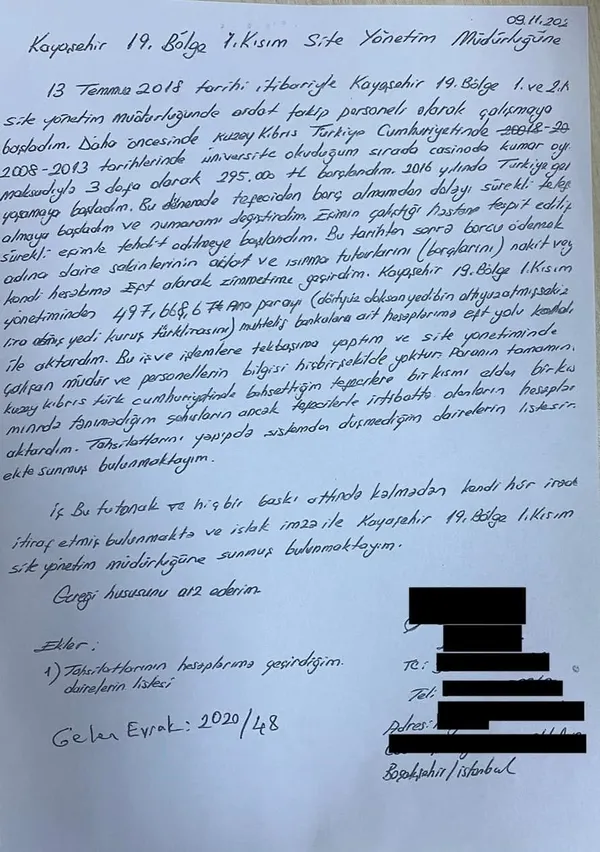 09.11.202
Kayaşehir 19. Bölge 1. Kısım Site Yönetim Müdürlüğüne
13 Temmuz 2018 tarihi itibariyle Kayaşehir 19. Bölge 1. ve 2.k
site yönetim müdürlüğünde aidat takip personeli olarak çalışmaya
başladım. Daha öncesinde Kuzey Kıbrıs Türkiye Cumhuriyetinde
2008-2013 tarihlerinde üniversite okuduğum sırada casinoda kumar oyn
maksadıyla 3 dosya olarak 295.000 tl borçlandım. 2016 yılında Türkiye gel
yaşamaya başladım. Bu dönemde tefeciden borç almamdan dolayı sürekli telef
almaya başladım ve numaramı değiştirdim. Eşimin çalıştığı hastane tespit edilip
sürekli eşimle tehdit edilmeye başlandım. Bu tarihten sonra borcu ödemek
adına daire sakinlerinin aidat ve ısınma tutarlarını (borçlarını) nakit vey
kendi hesabıma Eft olarak zimmetime geçirdim. Kayaşehir 19. Bölge 1. Kısım
yönetiminden 497,668,67 Ana parayı (dörtyüz doksan yedi bin altıyüz atmış sekiz
lira atmış yedi kuruş türk lirasını) muhtelif bankalara ait hesaplarıma eft yolu
ile aktardım. Bu iş ve işlemlere tek başıma yaptım ve site yönetiminde
çalışan müdür ve personellerin bilgisi hiçbir şekilde yoktur. Paranın tamamın
kuzey kıbrıs türk cumhuriyetinde bahsettiğim tefecilere bir kısmı elden bir kıs
mınında tanımadığım şahısların ancak tefecilerle irtibatta olanların hesaplar
aktardım. Tahsilatlarını yapıpda sistemden düşmediğim dairelerin listesin
ekte sunmuş bulunmaktayım.
İş Bu tutanak ve hiç bir baskı altında kalmadan kendi hür irade
itiraf etmiş bulunmakta ve ıslak imza ile Kayaşehir 19. Bölge 1. Kısım
site yönetim müdürlüğüne sunmuş bulunmaktayım.
Gereği hususunu arz ederim
Ekler:
1) Tahsilatlarının hesaplarıma geçirdiğim.
dairelerin listesi
Gelen Evrak: 2020/48
Tc:
Tel:
Adres:
Başakşehir/istanbul